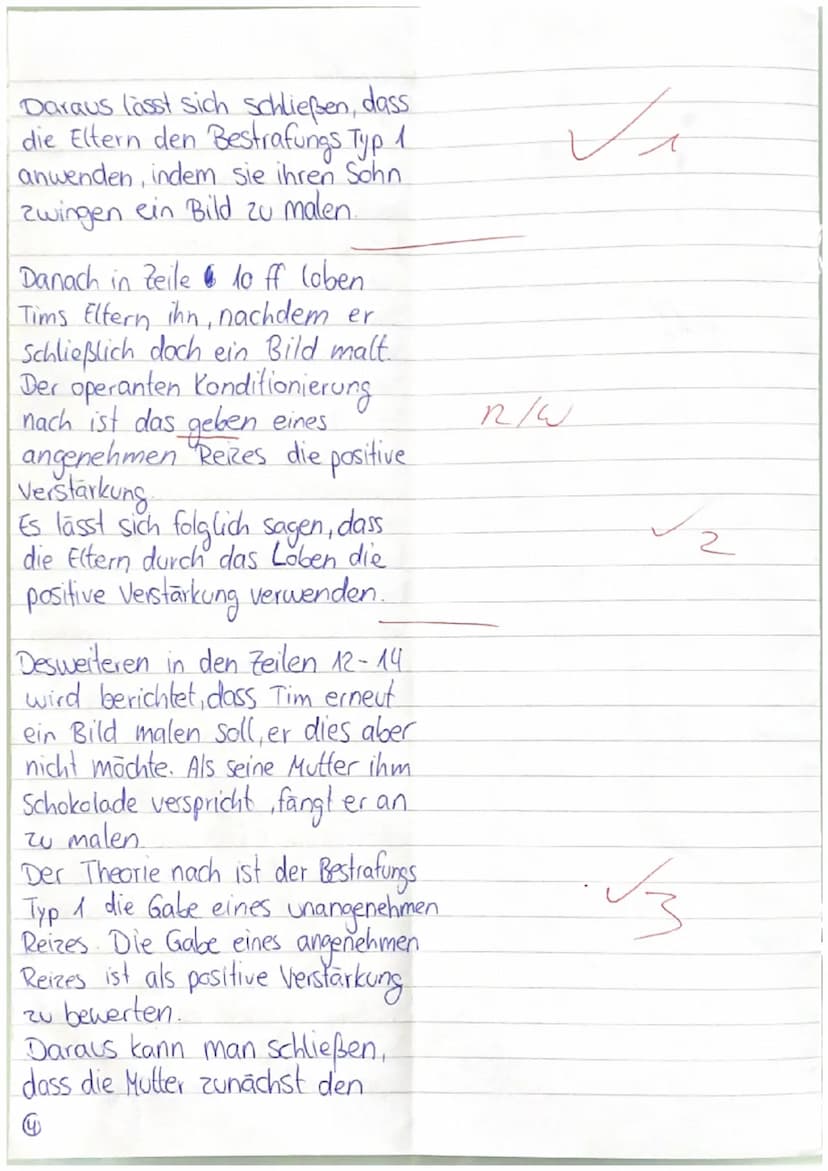 Daraus lässt sich schließen, dass
die Eltern den Bestrafungs Typ 1
anwenden, indem sie ihren Sohn
zwingen ein Bild zu malen.
√ 1
Danach in Zeile 10 ff loben
Tims Eltern ihn, nachdem er
schließlich doch ein Bild malt.
Der operanten Konditionierung
nach ist das geben eines
R/W
angenehmen Reizes die positive
Verstärkung.
Es lässt sich folglich sagen, dass
die Eltern durch das Loben die
positive Verstärkung verwenden.
√ 2
Desweiteren in den Zeilen 12-14
wird berichtet, dass Tim erneut
ein Bild malen soll, er dies aber
nicht möchte. Als seine Mutter ihm
Schokolade verspricht, fängt er an
zu malen.
Der Theorie nach ist der Bestrafungs
Typ 1 die Gabe eines unangenehmen
√ 3
Reizes. Die Gabe eines angenehmen
Reizes ist als positive Verstärkung
zu bewerten.
Daraus kann man schließen,
dass die Mutter zunächst den
4